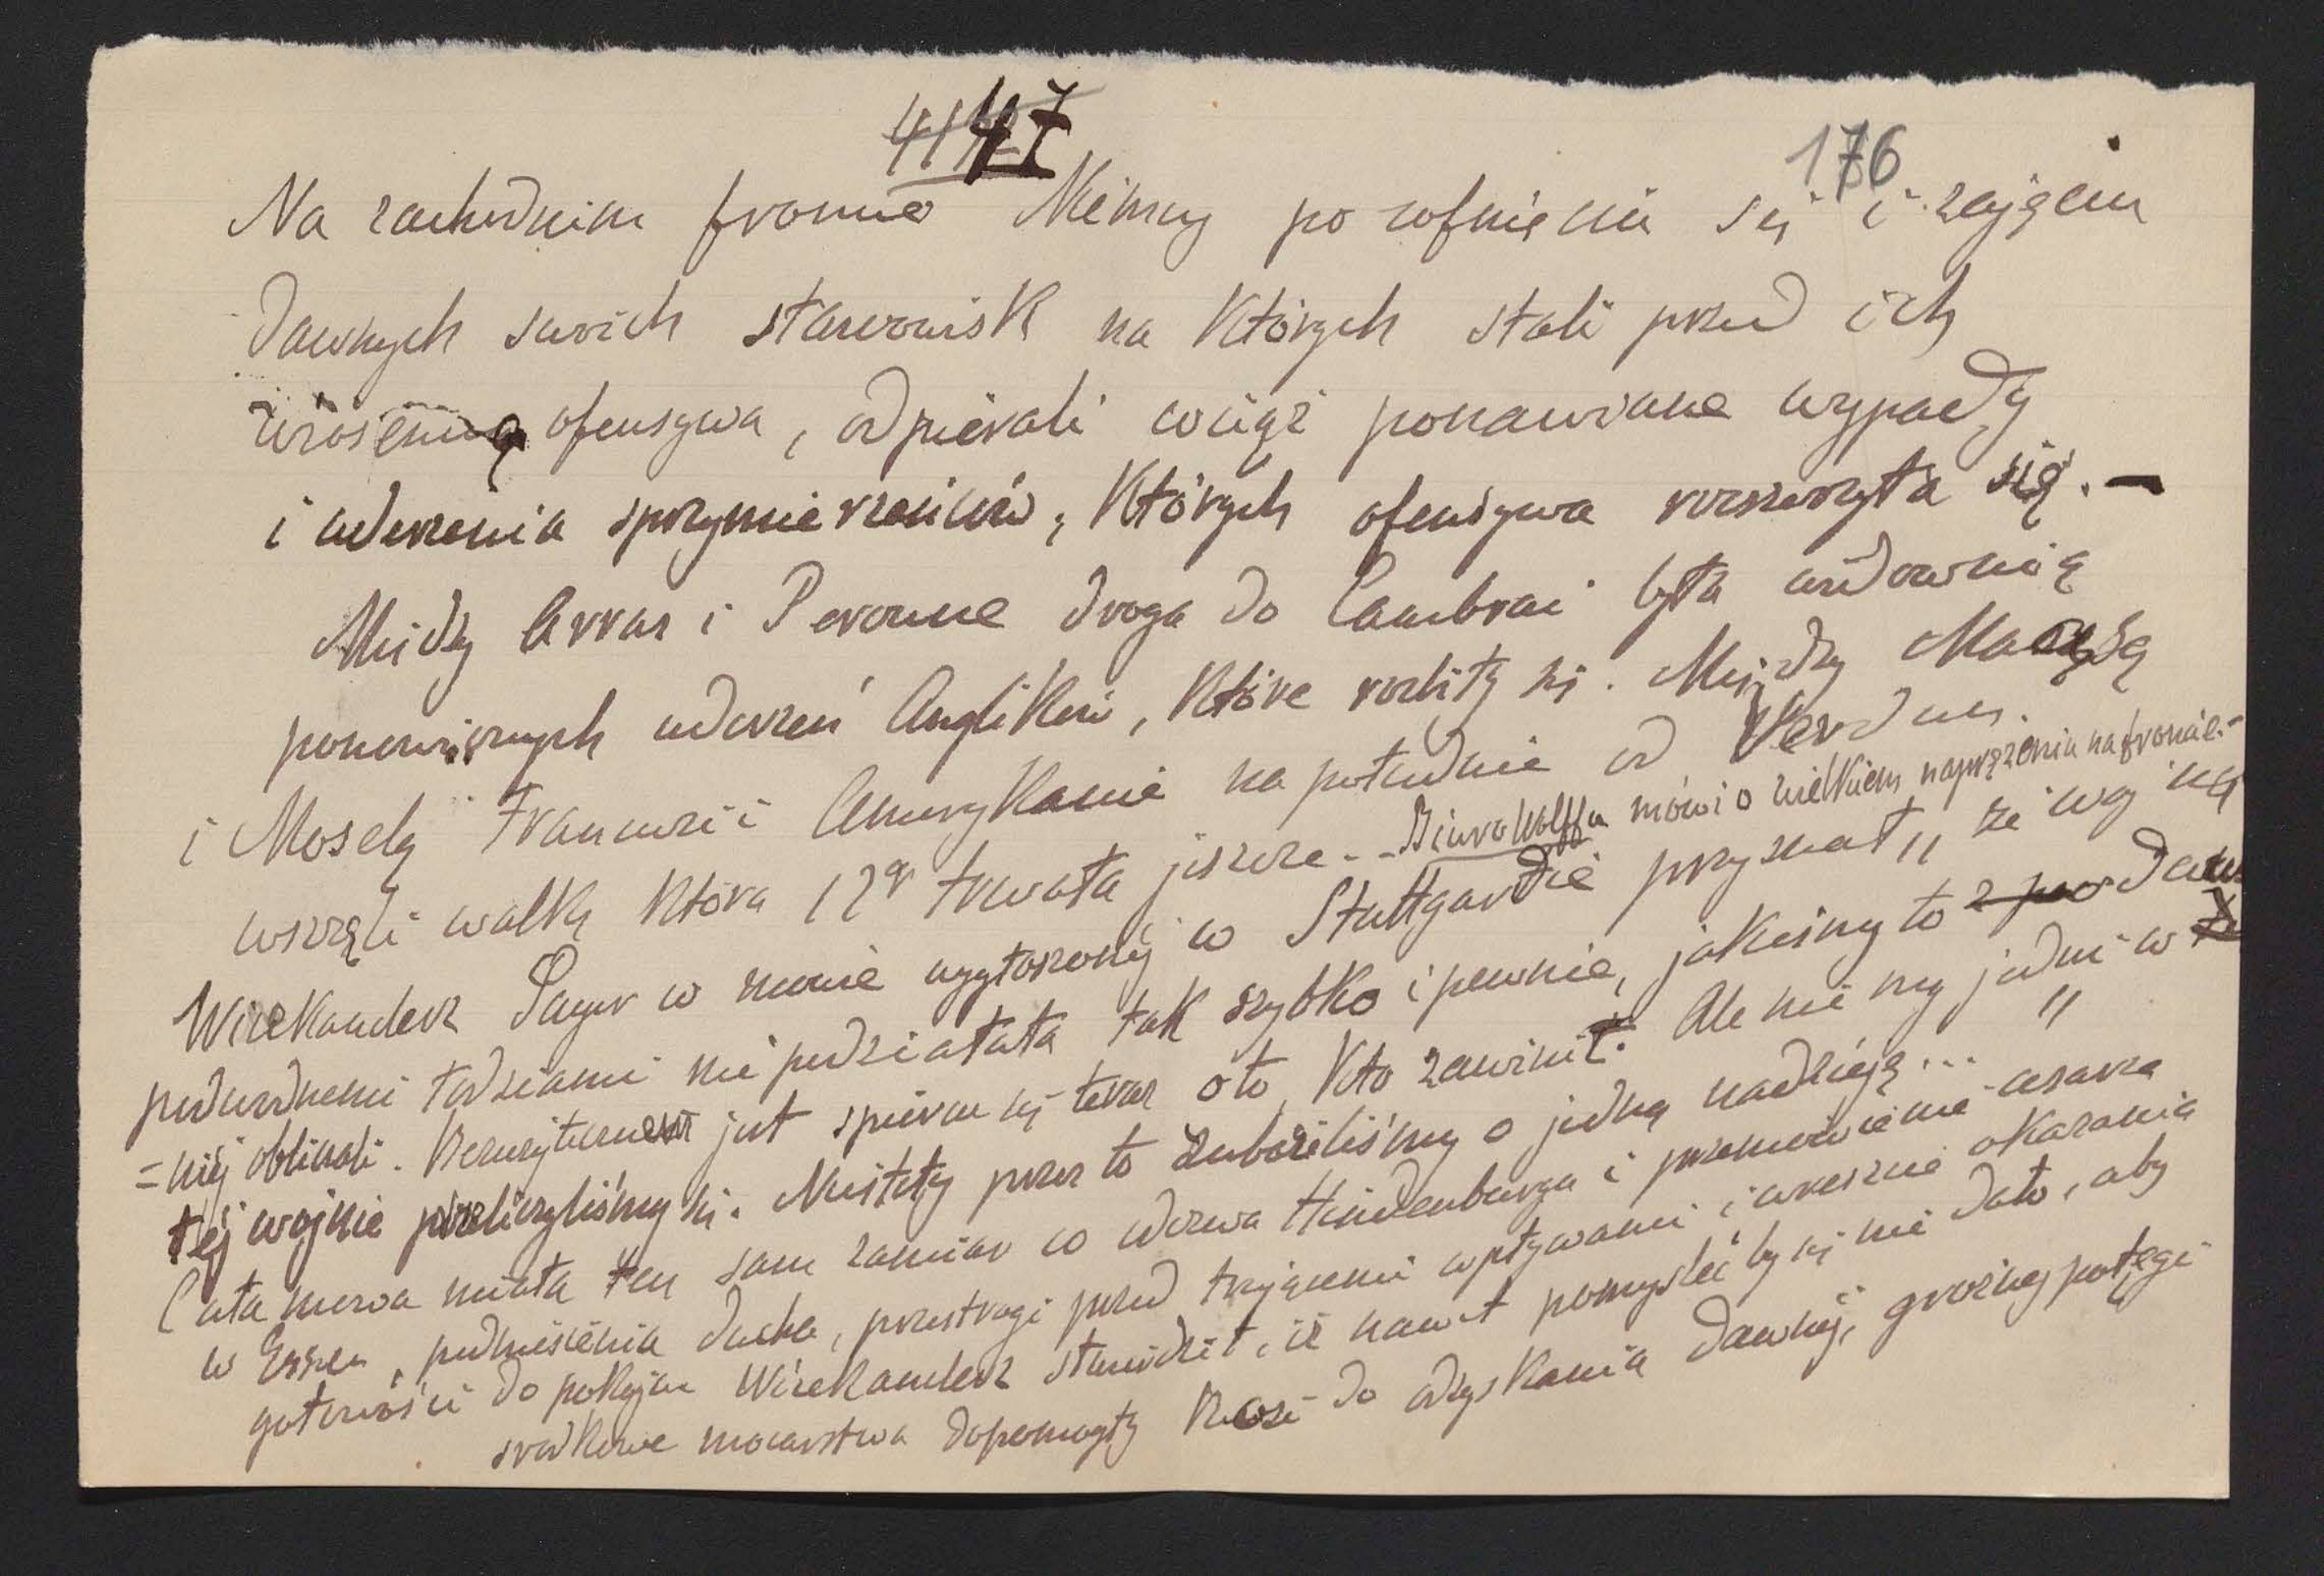 47
176
Na zachodnim froncie Niemcy po cofnięciu się i zajęciu
dawnych swoich stanowisk na których stali przed ich
wiosenną ofensywa, odpierali wciąż ponawiane wypady
i uderzenia sprzymierzeńców, których ofensywa rozszerzyła się. —
Między Arras i Peronne droga do Cambrai była widownią
ponowionych uderzeń Anglików, które rozbiły się. Między Mozą
i Mozelą Francuzi i Amerykanie na południe od Verdun
wszczęli walkę która 12go trwała jeszcze - - Biuro Wolffa mówi o wielkiem naprężeniu na froncie. -
Wicekanclerz Payer w mowie wygłoszonej w Stuttgardzie przyznał „że wojnę
podwodnemi łodziami nie podziałała tak szybko i pewnie, jakeśmy to z
=niej obliczali. Bezużytecznem jest spierać się teraz o to, kto zawinił. Ale nie my jedni w
tej wojnie przeliczyliśmy się. Niestety przez to zubożeliśmy o jedną nadzieję... "
Cała mowa miała ten sam zamiar co odezwa Hindenburga i przemówienie cesarza
w Essen, podniesienia ducha, przestrogi przed trującemi wpływami i wreszcie okazania
gotowości do pokoju Wicekanclerz stwierdził, iż nawet pomyśleć by się nie dało, aby
środkowe mocarstwa dopomogły Rosji do odzyskania dawnej, groźnej potęgi